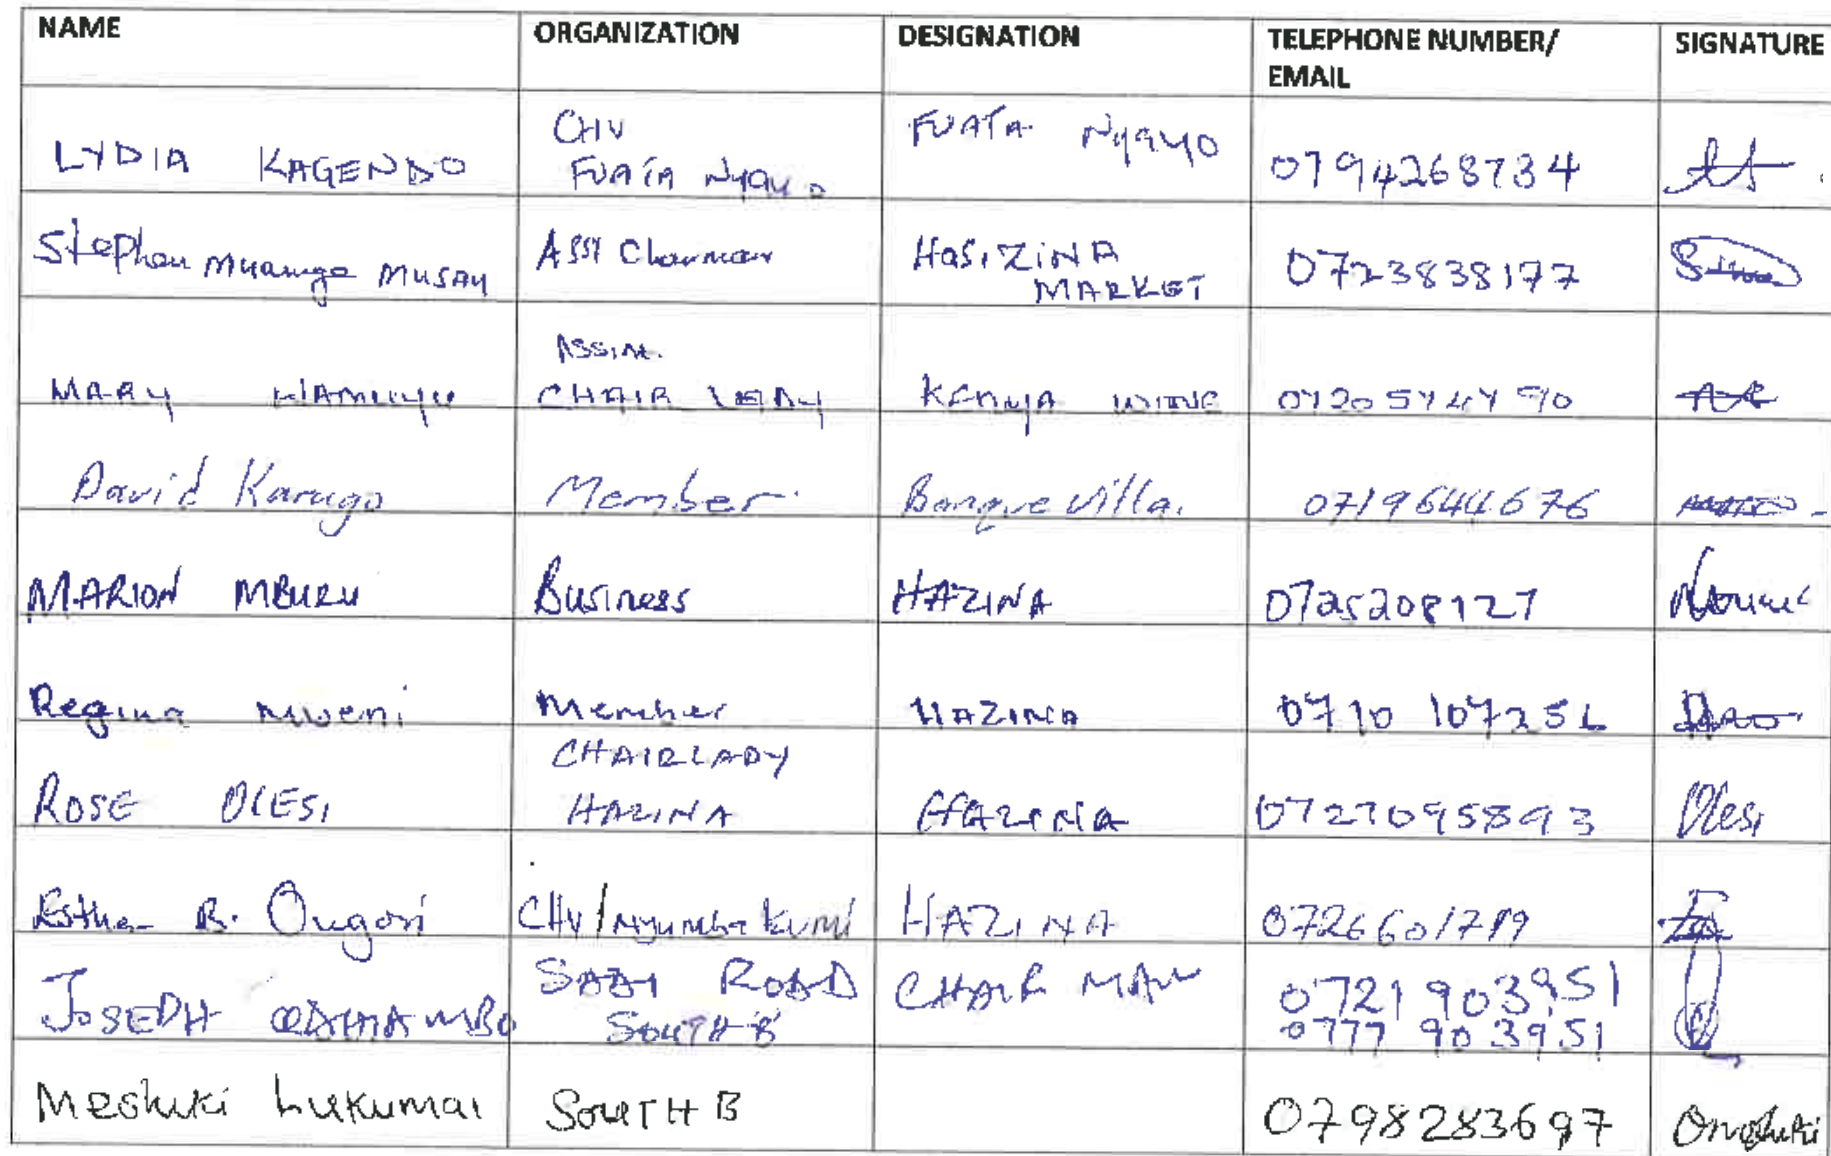 NAME ORGANIZATION DESIGNATION TELEPHONE NUMBER/ EMAIL SIGNATURE
LYDIA KAGENDO CHV FUATA NYAYO FUATA NYAYO 0794268734
Stephen MUSAU ASST Chairman HASIZINA MARKET 0723838177
MARY WAMUYU ASSIM. CHAIR LADY KENYA WINE
David Karugo Member. Banque villa. 0719644676
MARION MBURU Business HAZINA 0725208127
Regina Mweni Member HAZINA 0710 107256
ROSE OLESI CHAIRLADY HAZINA HAZINA 0727095893 Olesi
Esther B. Ongori CHV/Nyumba kumi HAZINA 0726601719
JOSEPH ODHIAMBO ROAD SOUTH B CHAIR MAN 0721 903951 0777 903951
Meshuki Lukumai SOUTH B 0798283697